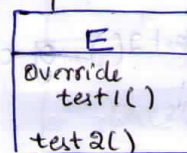 E
Override
test1()
test2()